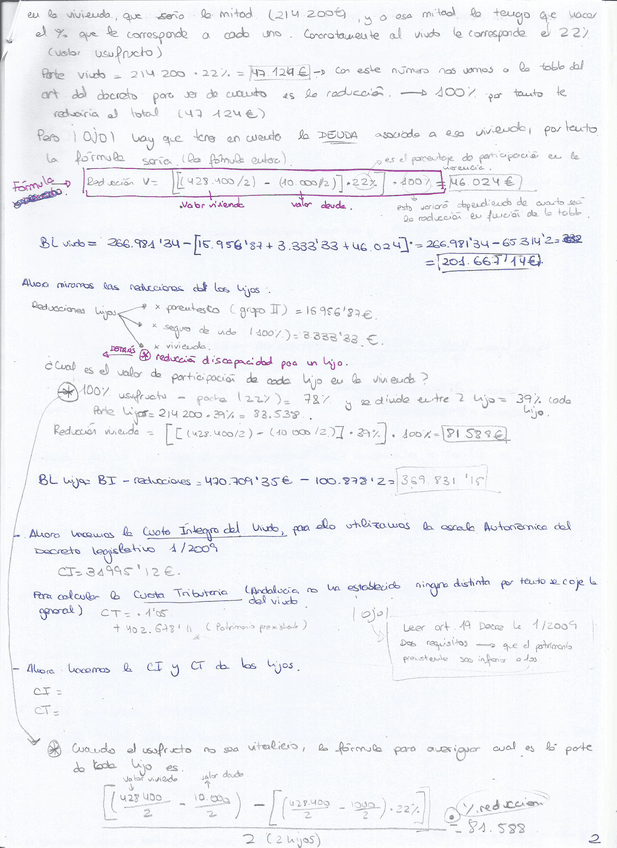 en la vivienda, que sería la mitad (214 200€), y a esa mitad la tengo que sacar
el % que le corresponde a cada uno. Concretamente al viudo le corresponde el 22%
(valor usufructo)
Parte viudo = 214 200 · 22% = 47 124€ → Con este número nos vamos a la tabla del
art del decreto para ver de cuanto es la reducción. → 100% por tanto te
reduciría el total (47 124€)
Pero ¡OJO! hay que tener en cuenta la DEUDA asociada a esa vivienda, por tanto
la fórmula sería (la fórmula entera).
es el porcentaje de participación en la herencia.
Fórmula → Reducción V = [(428.400/2) - (10.000/2)] · 22% · 100% = 46.024€
valor vivienda valor deuda. esto variará dependiendo de cuanto sea
la reducción en función de la tabla.
BL viudo = 266.981'34 - [15.956'87 + 3.333'33 + 46.024] = 266.981'34 - 65.314'2 =
= 201.667'14€
Ahora miramos las reducciones de los hijos:
Reducciones hijos → x parentesco (grupo II) = 15 956'87€.
x seguro de vida (100%) = 3.333'33 €.
x vivienda.
DETRÁS ⊛ reducción discapacidad para un hijo.
¿Cual es el valor de participación de cada hijo en la vivienda?
⊛ 100% usufructo - padre (22%) = 78% y se divide entre 2 hijos = 39% cada
hijo.
Parte hijos = 214 200 · 39% = 83.538
Reducción vivienda = [[(428.400/2) - (10 000/2)] · 39%] · 100% = 81 588€
BL hijos = BI - reducciones = 470.709'35€ - 100.878'2 = 369.831'15
- Ahora hacemos la Cuota Íntegra del Viudo, para ello utilizamos la escala Autonómica del
Decreto Legislativo 1/2009
CI = 31995'12€.
Para calcular la Cuota Tributaria del viudo (Andalucía no ha establecido ninguna distinta por tanto se coje la
general) CT = · 1'05
+ 402.678'11 (Patrimonio preexistente)
¡ojo!
Leer art. 19 Decre le 1/2009
Dos requisitos → que el patrimonio
preexistente sea inferior a los
- Ahora hacemos la CI y CT de los hijos.
CI =
CT =
⊛ Cuando el usufructo no sea vitalicio, la fórmula para averiguar cual es la parte
de cada hijo es.
valor vivienda valor deuda
[(428 400/2 - 10.000/2) - [(428.400/2 - 10000/2) · 22%]] · % reducción
2 (2 hijos)
= 81.588
2